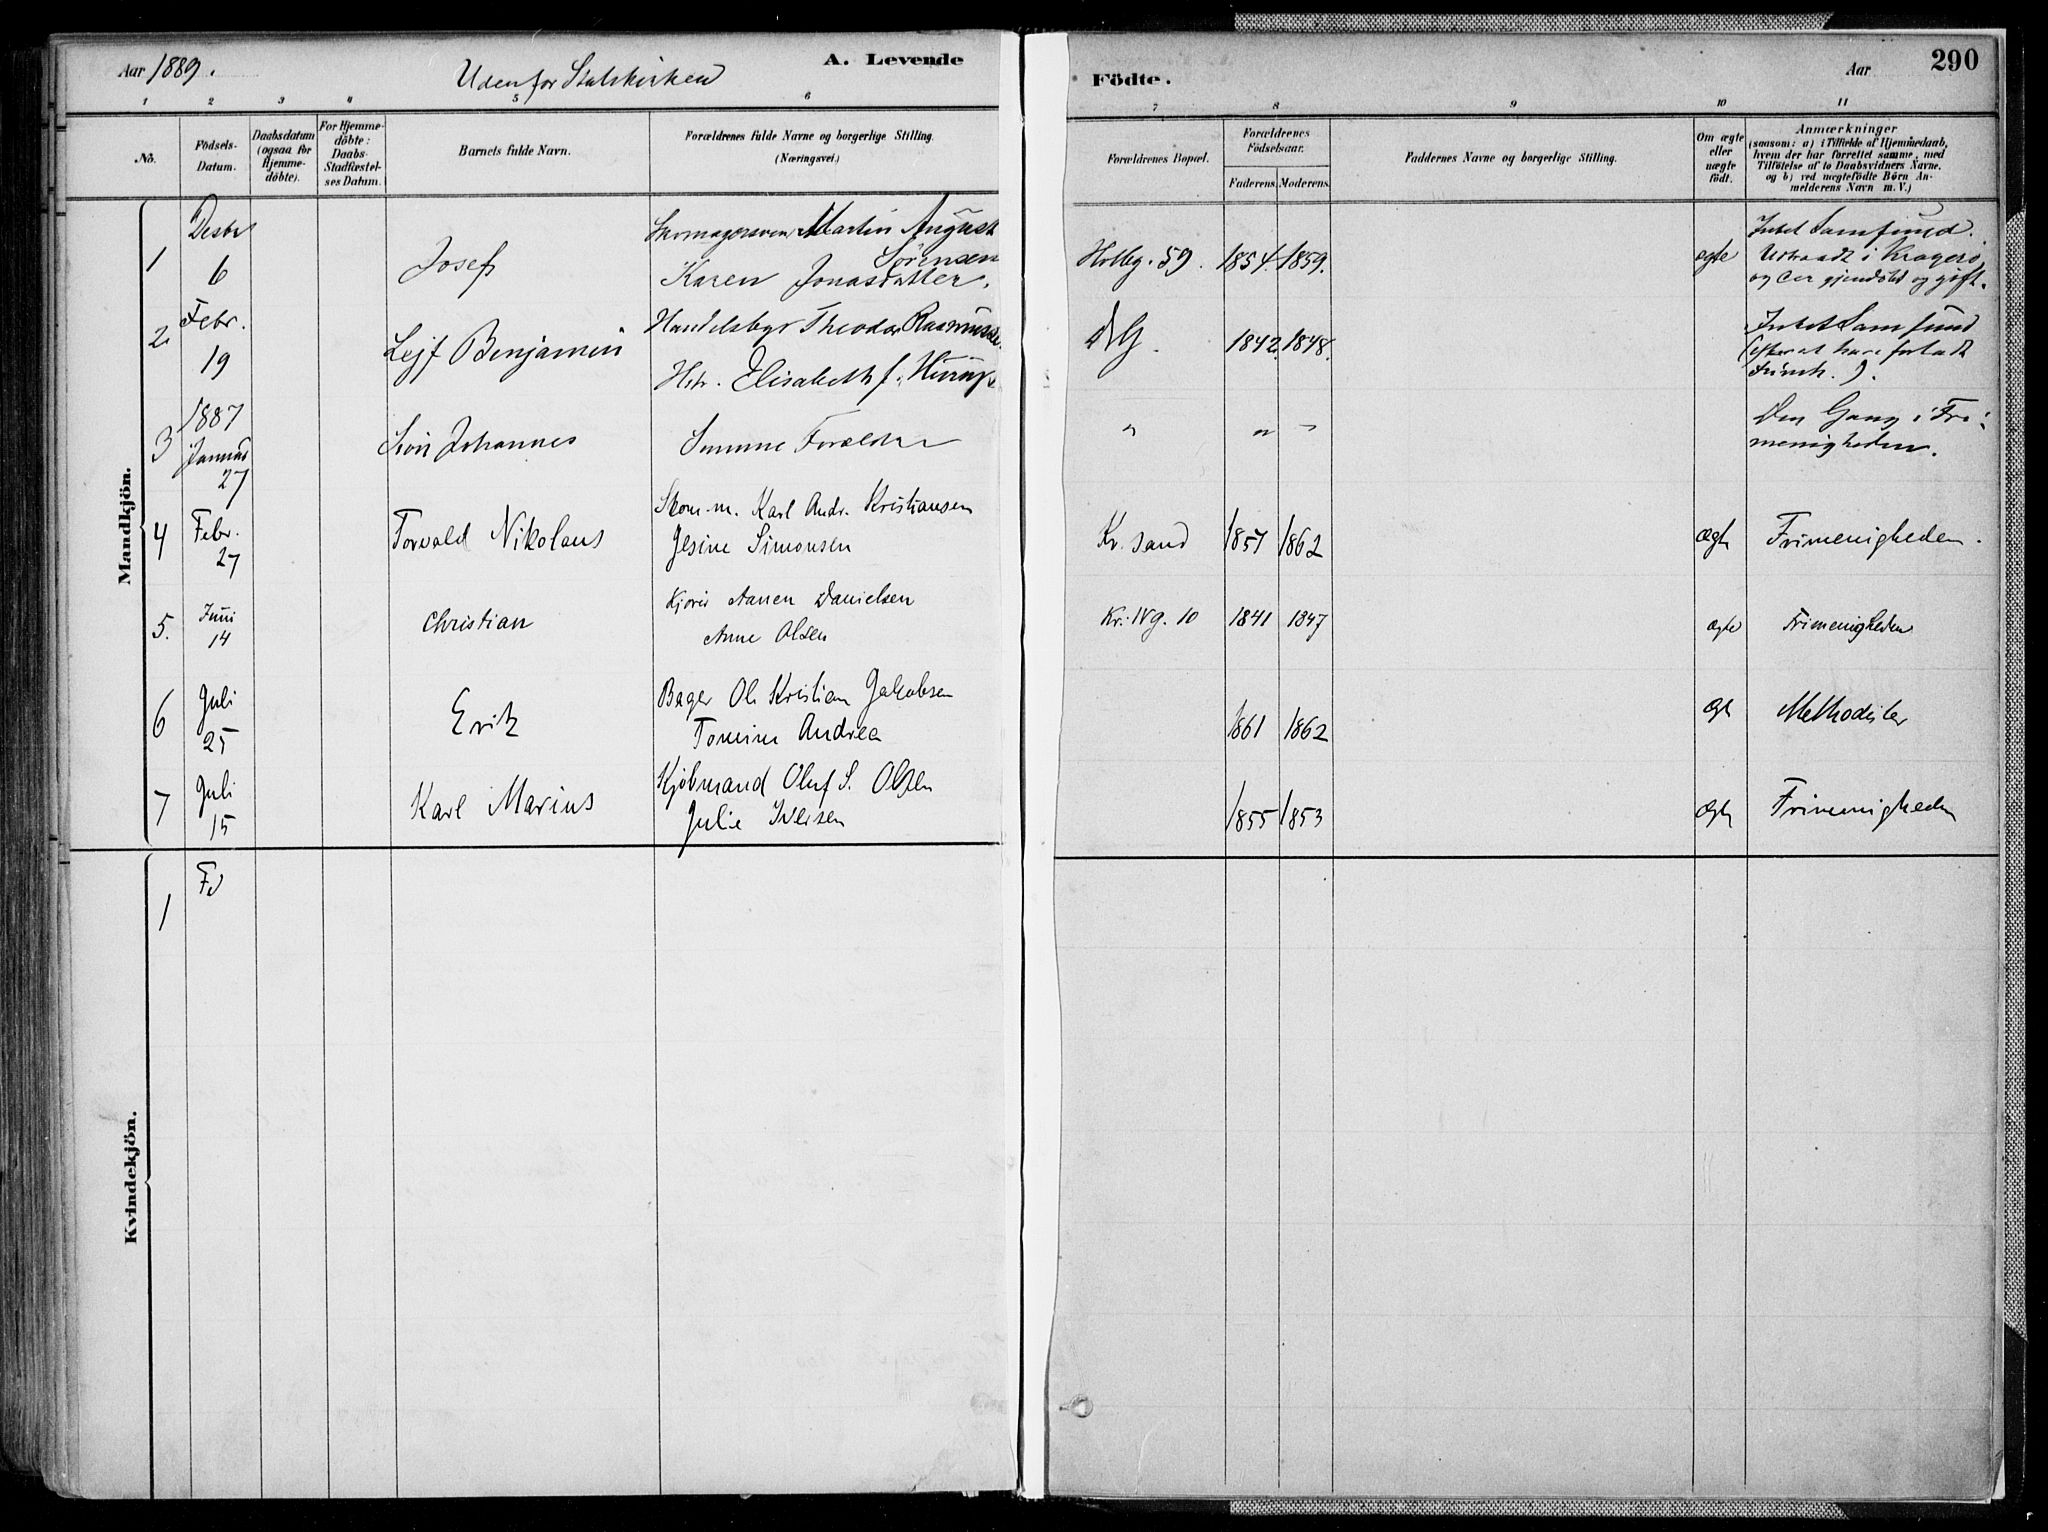 Aar 1889. Udenfor Statskirken A. Levende Födte. Aar 290
1 2 3 4 5 6 7 8 9 10 11
No.
Födsels-Datum.
Daabsdatum (ogsaa for Hjemmedöbte).
For Hjemmedöbte: Daabs-Stadfæstelses Datum.
Barnets fulde Navn.
Forældrenes fulde Navne og borgerlige Stilling. (Næringsvei.)
Forældrenes Bopæl.
Forældrenes Födselsaar.
Faderens. Moderens.
Faddernes Navne og borgerlige Stilling.
Om ægte eller uægte födt.
Anmærkninger
(saasom: a) i Tilfælde af Hjemmedaab,
hvem der har forrettet samme, med
Tilföielse af to Daabsvidners Navne,
og b) ved uægtefödte Börn Anmelderens Navn m. V.)
Mandkjön.
1 Decbr 6 Josef Skomagersvend Martin August Sørensen
Karen Jonasdatter. Holbg. 59. 1854. 1859. ægte Intet Samfund.
Udtraadt i Kragerø
og er gjendøbt og gift.
2 Febr. 19 Lejf Benjamin Handelsbgr Theodor Rasmussen
Hstr. Elisabeth f. 1842. 1848. Intet Samfund
(efter at have forladt
Frimh.).
3 1887 Januar 27 Sven Johannes Samme Forældre " " " Den Gang i Fri-
menigheden.
4 Febr. 27 Torvald Nikolaus Skom. m. Karl Andr. Kristiansen
Jesine Simonsen Kr. sand 1857 1862 ægte Frimenigheden.
5. Juni 14 Christian Aanen Danielsen
Anne Olsen Kr. Ng. 10 1841 1847 ægte Frimenigheden
6 Juli 25 Erik Bager Ole Kristian Jakobsen
Tomine Andrea 1861 1862 ægte Methodister
7 Juli 15 Karl Marius Kjöbmand Oluf S. Olsen
Julie Iversen 1855 1853 ægte Frimenigheden
Kvindekjön.
1 Fe